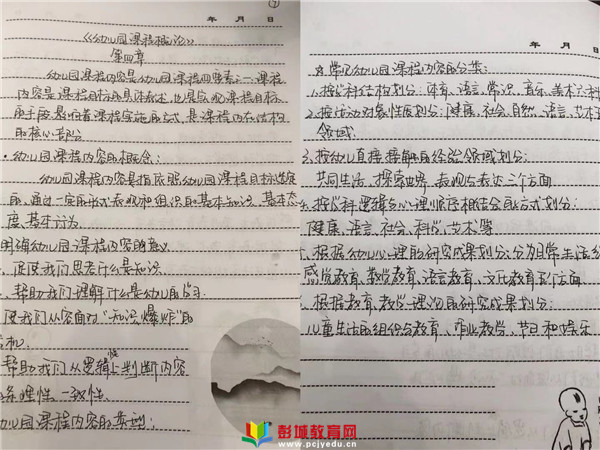 年 月 日
《幼儿园课程概论》
第四章
幼儿园课程内容是幼儿园课程四要素之一,课程
内容是课程目标的具体表述,也是实现课程目标
的手段,影响着课程实施的方式,是课程内在结构
的核心部分
·幼儿园课程内容的概念:
幼儿园课程内容是指依照幼儿园课程目标选定
的、通过一定的形式表现和组织的基本知识、基本态
度、基本行为.
明确幼儿园课程内容的意义
促使我们思考什么是知识.
帮助我们理解什么是幼儿的学习
使我们从容面对“知识爆炸”的
帮助我们从逻辑上判断内容
条理性、一致性.
幼儿园课程内容的类型:
年 月 日
常见幼儿园课程内容的分类:
1.按学科结构划分:体育、语言、常识、音乐、美术
2.按活动对象性质划分:健康、社会、自然、语言、艺术
领域.
3.按幼儿直接接触的经验领域划分:
共同生活、探索世界、表现与表达三个方面
按学科逻辑与心理顺序相结合的方式划分:
健康、语言、社会、科学、艺术等
根据幼儿心理的研究成果划分:分为日常生活
感觉教育、数学教育、语言教育、文化教育等方面
根据教育、教学理论的研究成果划分:
儿童生活的组织与教育、作业教学、节日和娱乐
彭城教育网
www.pcjyedu.cn